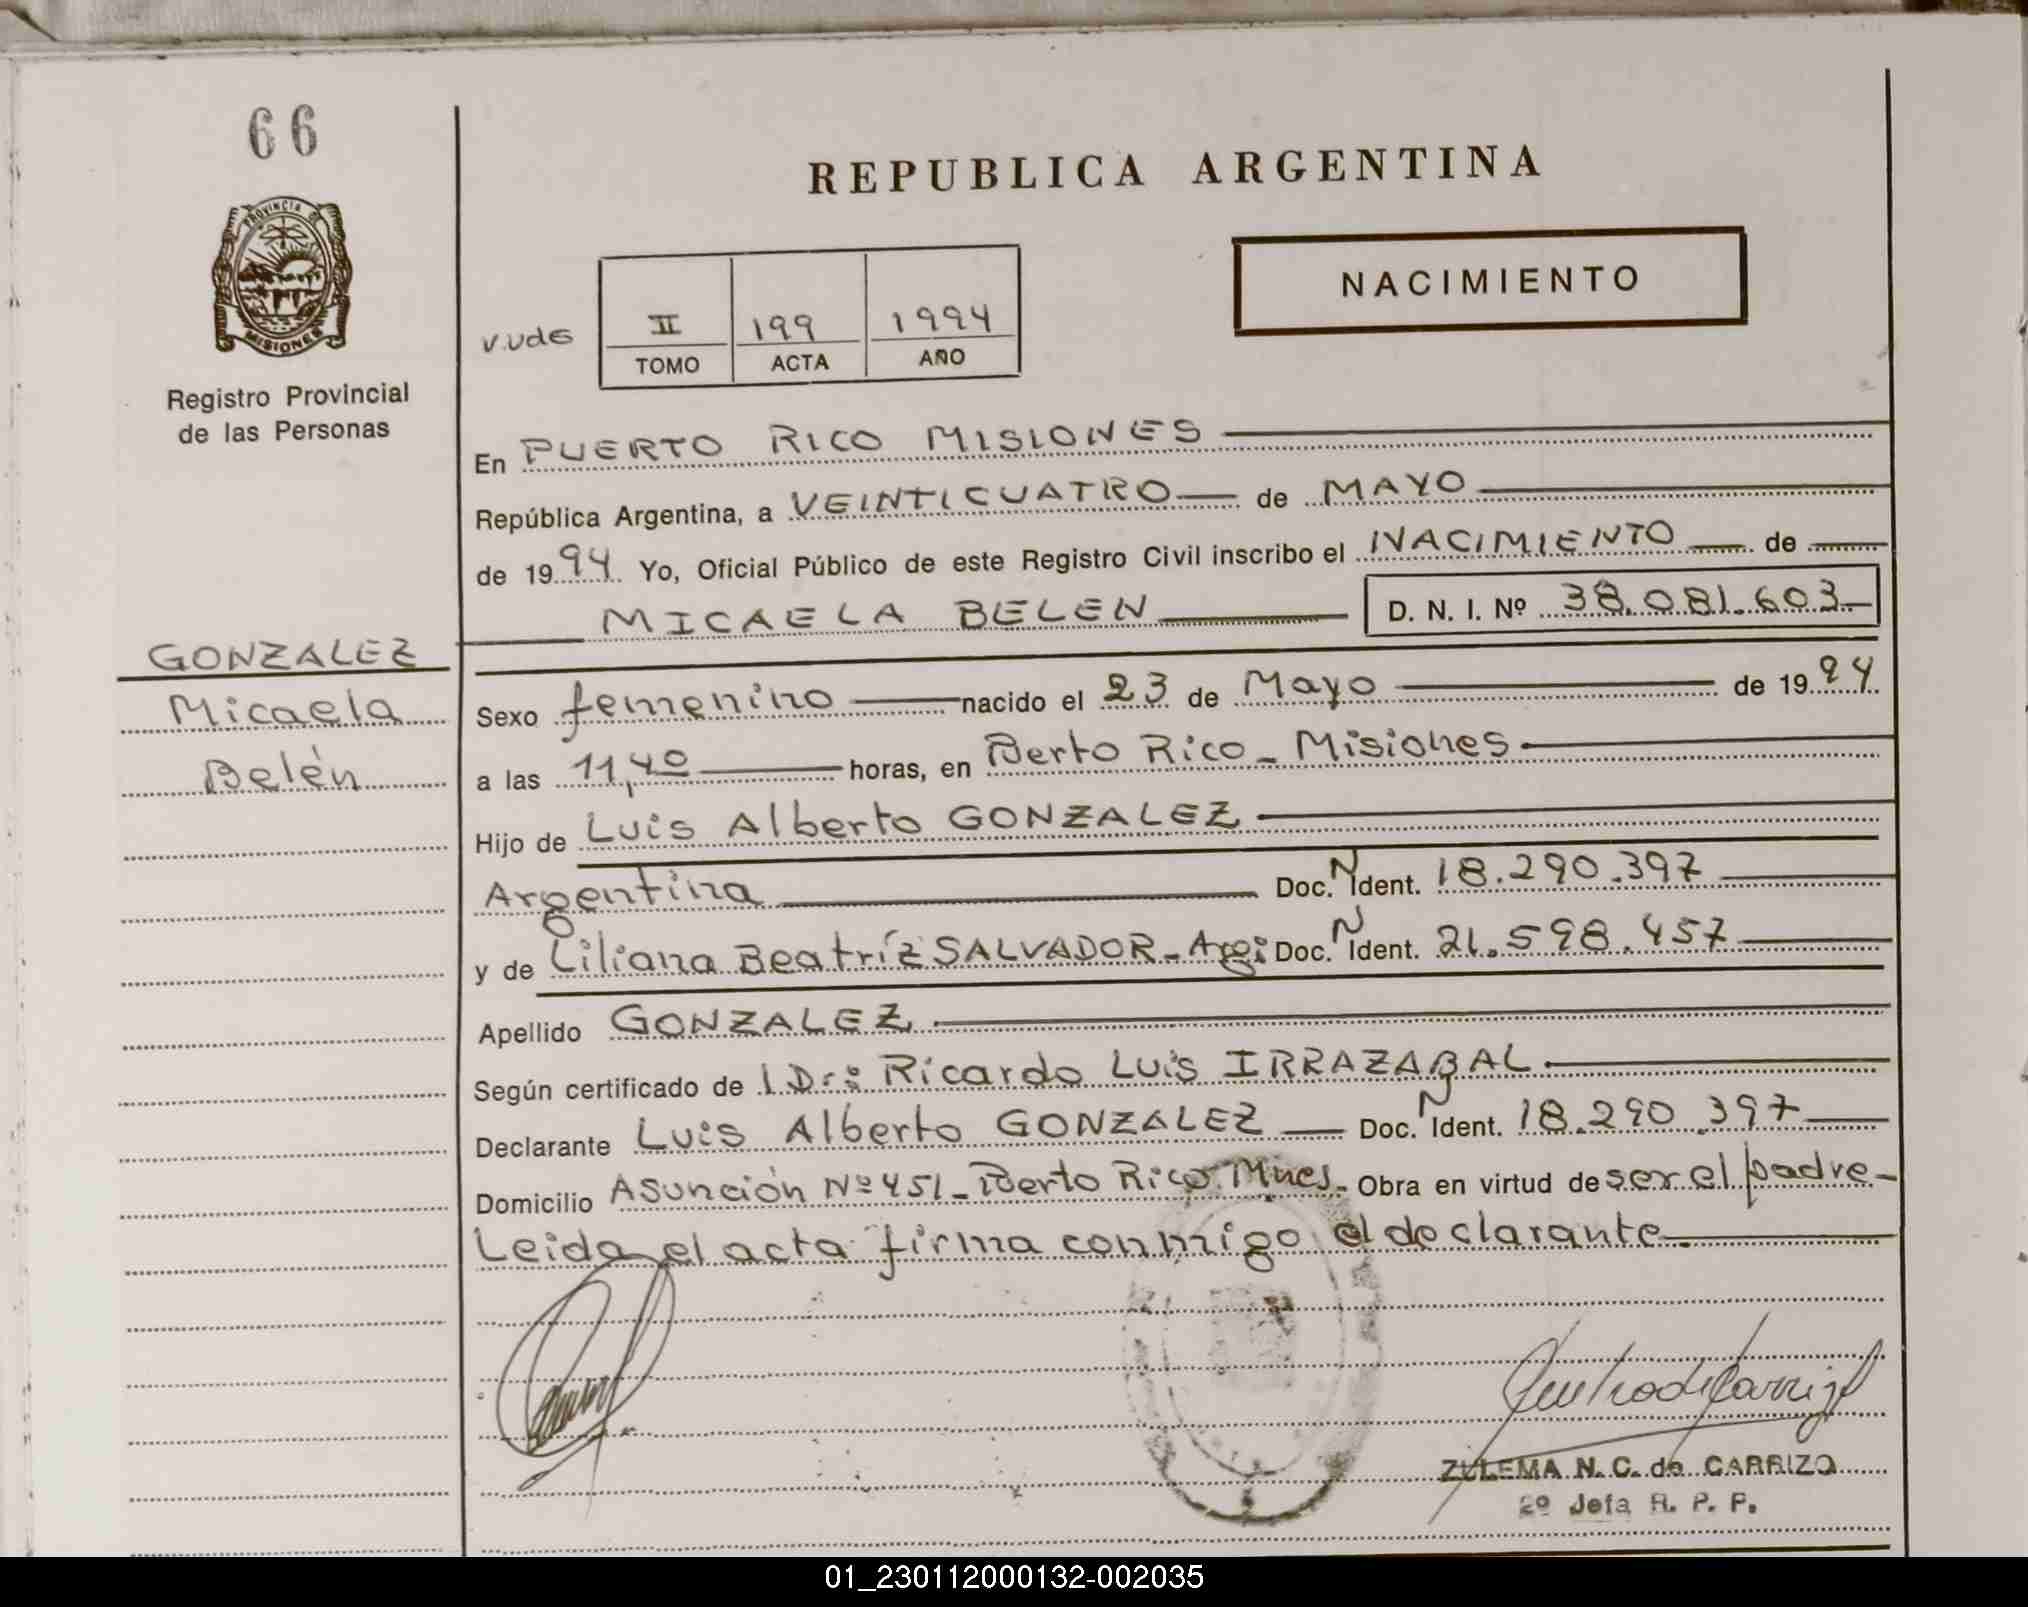 66
PROVINCIA DE
MISIONES
Registro Provincial
de las Personas
REPUBLICA ARGENTINA
NACIMIENTO
II 199 1994
TOMO ACTA AÑO
En PUERTO RICO MISIONES
República Argentina, a VEINTICUATRO de MAYO
de 1994 Yo, Oficial Público de este Registro Civil inscribo el NACIMIENTO de
MICAELA BELEN D. N. I. Nº 38.081.603
GONZALEZ
Micaela
Belén
Sexo femenino nacido el 23 de Mayo de 1994
a las 11,40 horas, en Pberto Rico - Misiones
Hijo de Luis Alberto GONZALEZ
Argentina Doc. N Ident. 18.290.397
y de Liliana Beatríz SALVADOR - Arg: Doc. N Ident. 21.598.457
Apellido GONZALEZ
Según certificado de l Dr: Ricardo Luis IRRAZABAL
Declarante Luis Alberto GONZALEZ Doc. N Ident. 18.290.397
Domicilio Asunción Nº 451 - Pberto Rico. Mnes. Obra en virtud de ser el padre -
Leida el acta firma conmigo el declarante
ZULEMA N. C. de CARRIZO
2º Jefa R. P. P.
01_230112000132-002035